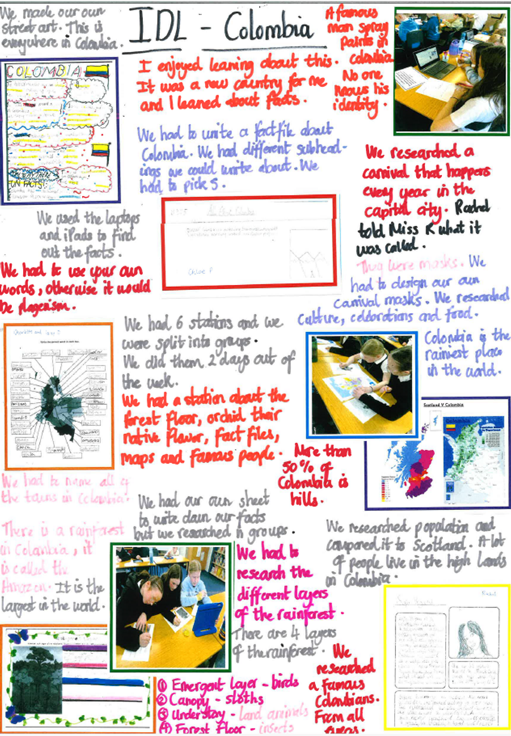 We made our own
street art. This is
everywhere in Colombia.
IDL - Colombia
A famous
man spray
paints in
Colombia
No one
knows his
identity.
I enjoyed learning about this.
It was a new country for me
and I learned about facts.
COLOMBIA
FUN FACTS!
We had to write a factfile about
Colombia. We had different subhead-
ings we could write about. We
had to pick 5.
We researched a
carnival that happens
every year in the
capital city. Rachel
told Miss K what it
was called.
We used the laptops
and iPads to find
out the facts.
We had to use your own
words, otherwise it would
be plagerism.
They wore masks. We
had to design our own
carnival masks. We researched
culture, celebrations and food.
We had 6 stations and we
were split into groups.
We did them 2 days out of
the week.
We had a station about the
forest floor, orchid their
native flower, fact files,
maps and famous people.
Colombia is the
rainiest place
in the world.
Scotland V Colombia
More than
50% of
Colombia is
hills.
We had to name all of
the towns in Colombia.
We had our own sheet
to write down our facts
but we researched in groups.
There is a rainforest
in Colombia, it
is called the
Amazon. It is the
largest in the world.
We had to
research the
different layers
of the rainforest.
There are 4 layers
of the rainforest.
We researched population and
compared it to Scotland. A lot
of people live in the high lands
in Colombia.
We
researched
a famous
Colombians.
From all
① Emergent layer - birds
② Canopy - sloths
③ Understory - land animals
④ Forest floor - insects